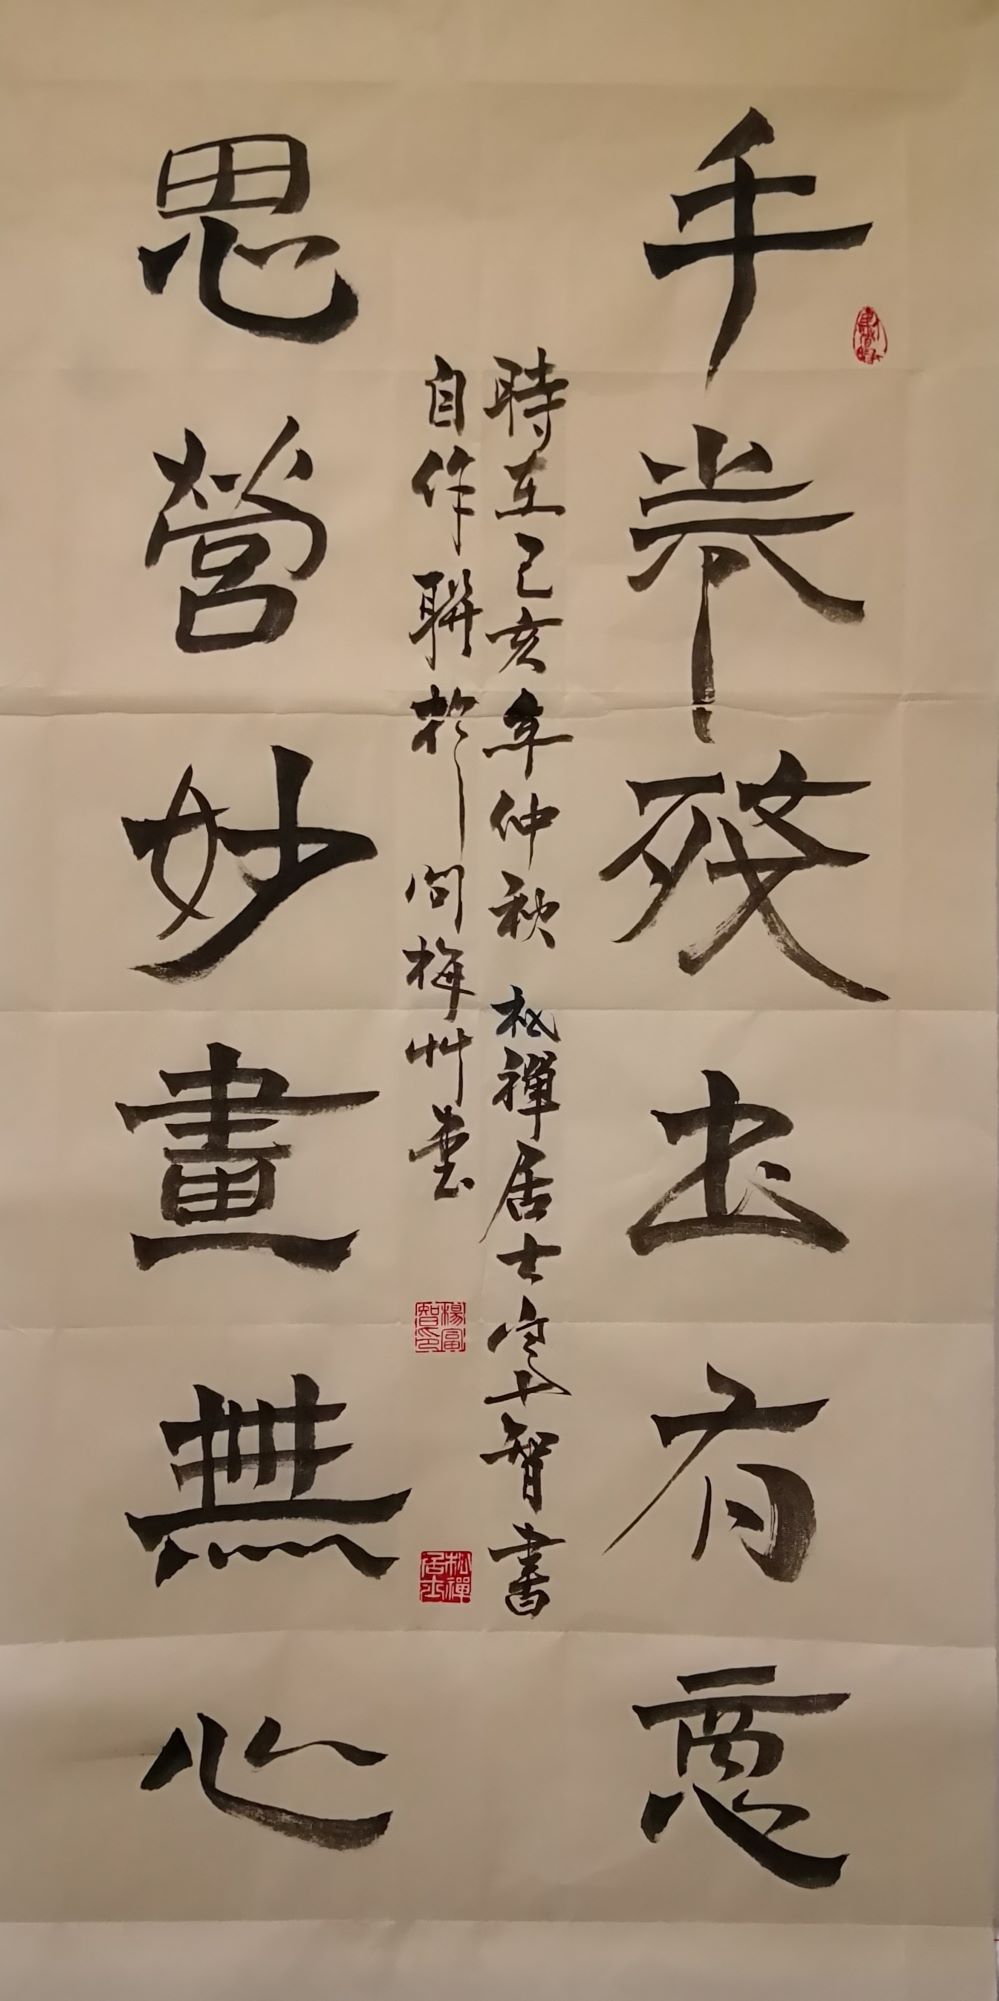 手卷殘書有惡
時在己亥年仲秋 松禪居士富智書
自作聯於問梅艸堂
思營妙畫無心
楊富智印
松禪居士